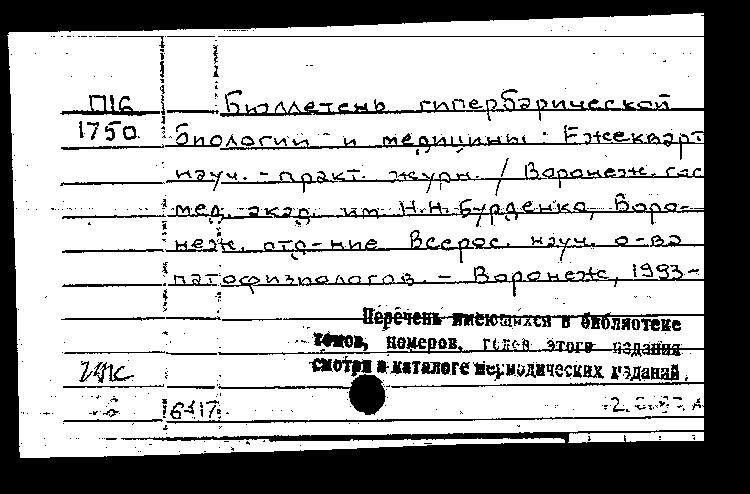 П16 Бюллетень гипербарической
1750 биологии и медицины: Ежекварт
науч.-практ. журн. / Воронеж. гос
мед. акад. им. Н.Н. Бурденко, Воро-
неж. отд-ние Всерос. науч. о-ва
патофизиологов. - Воронеж, 1993-
Перечень имеющихся в библиотеке
томов, номеров, годов этого издания
смотри в каталоге периодических изданий.